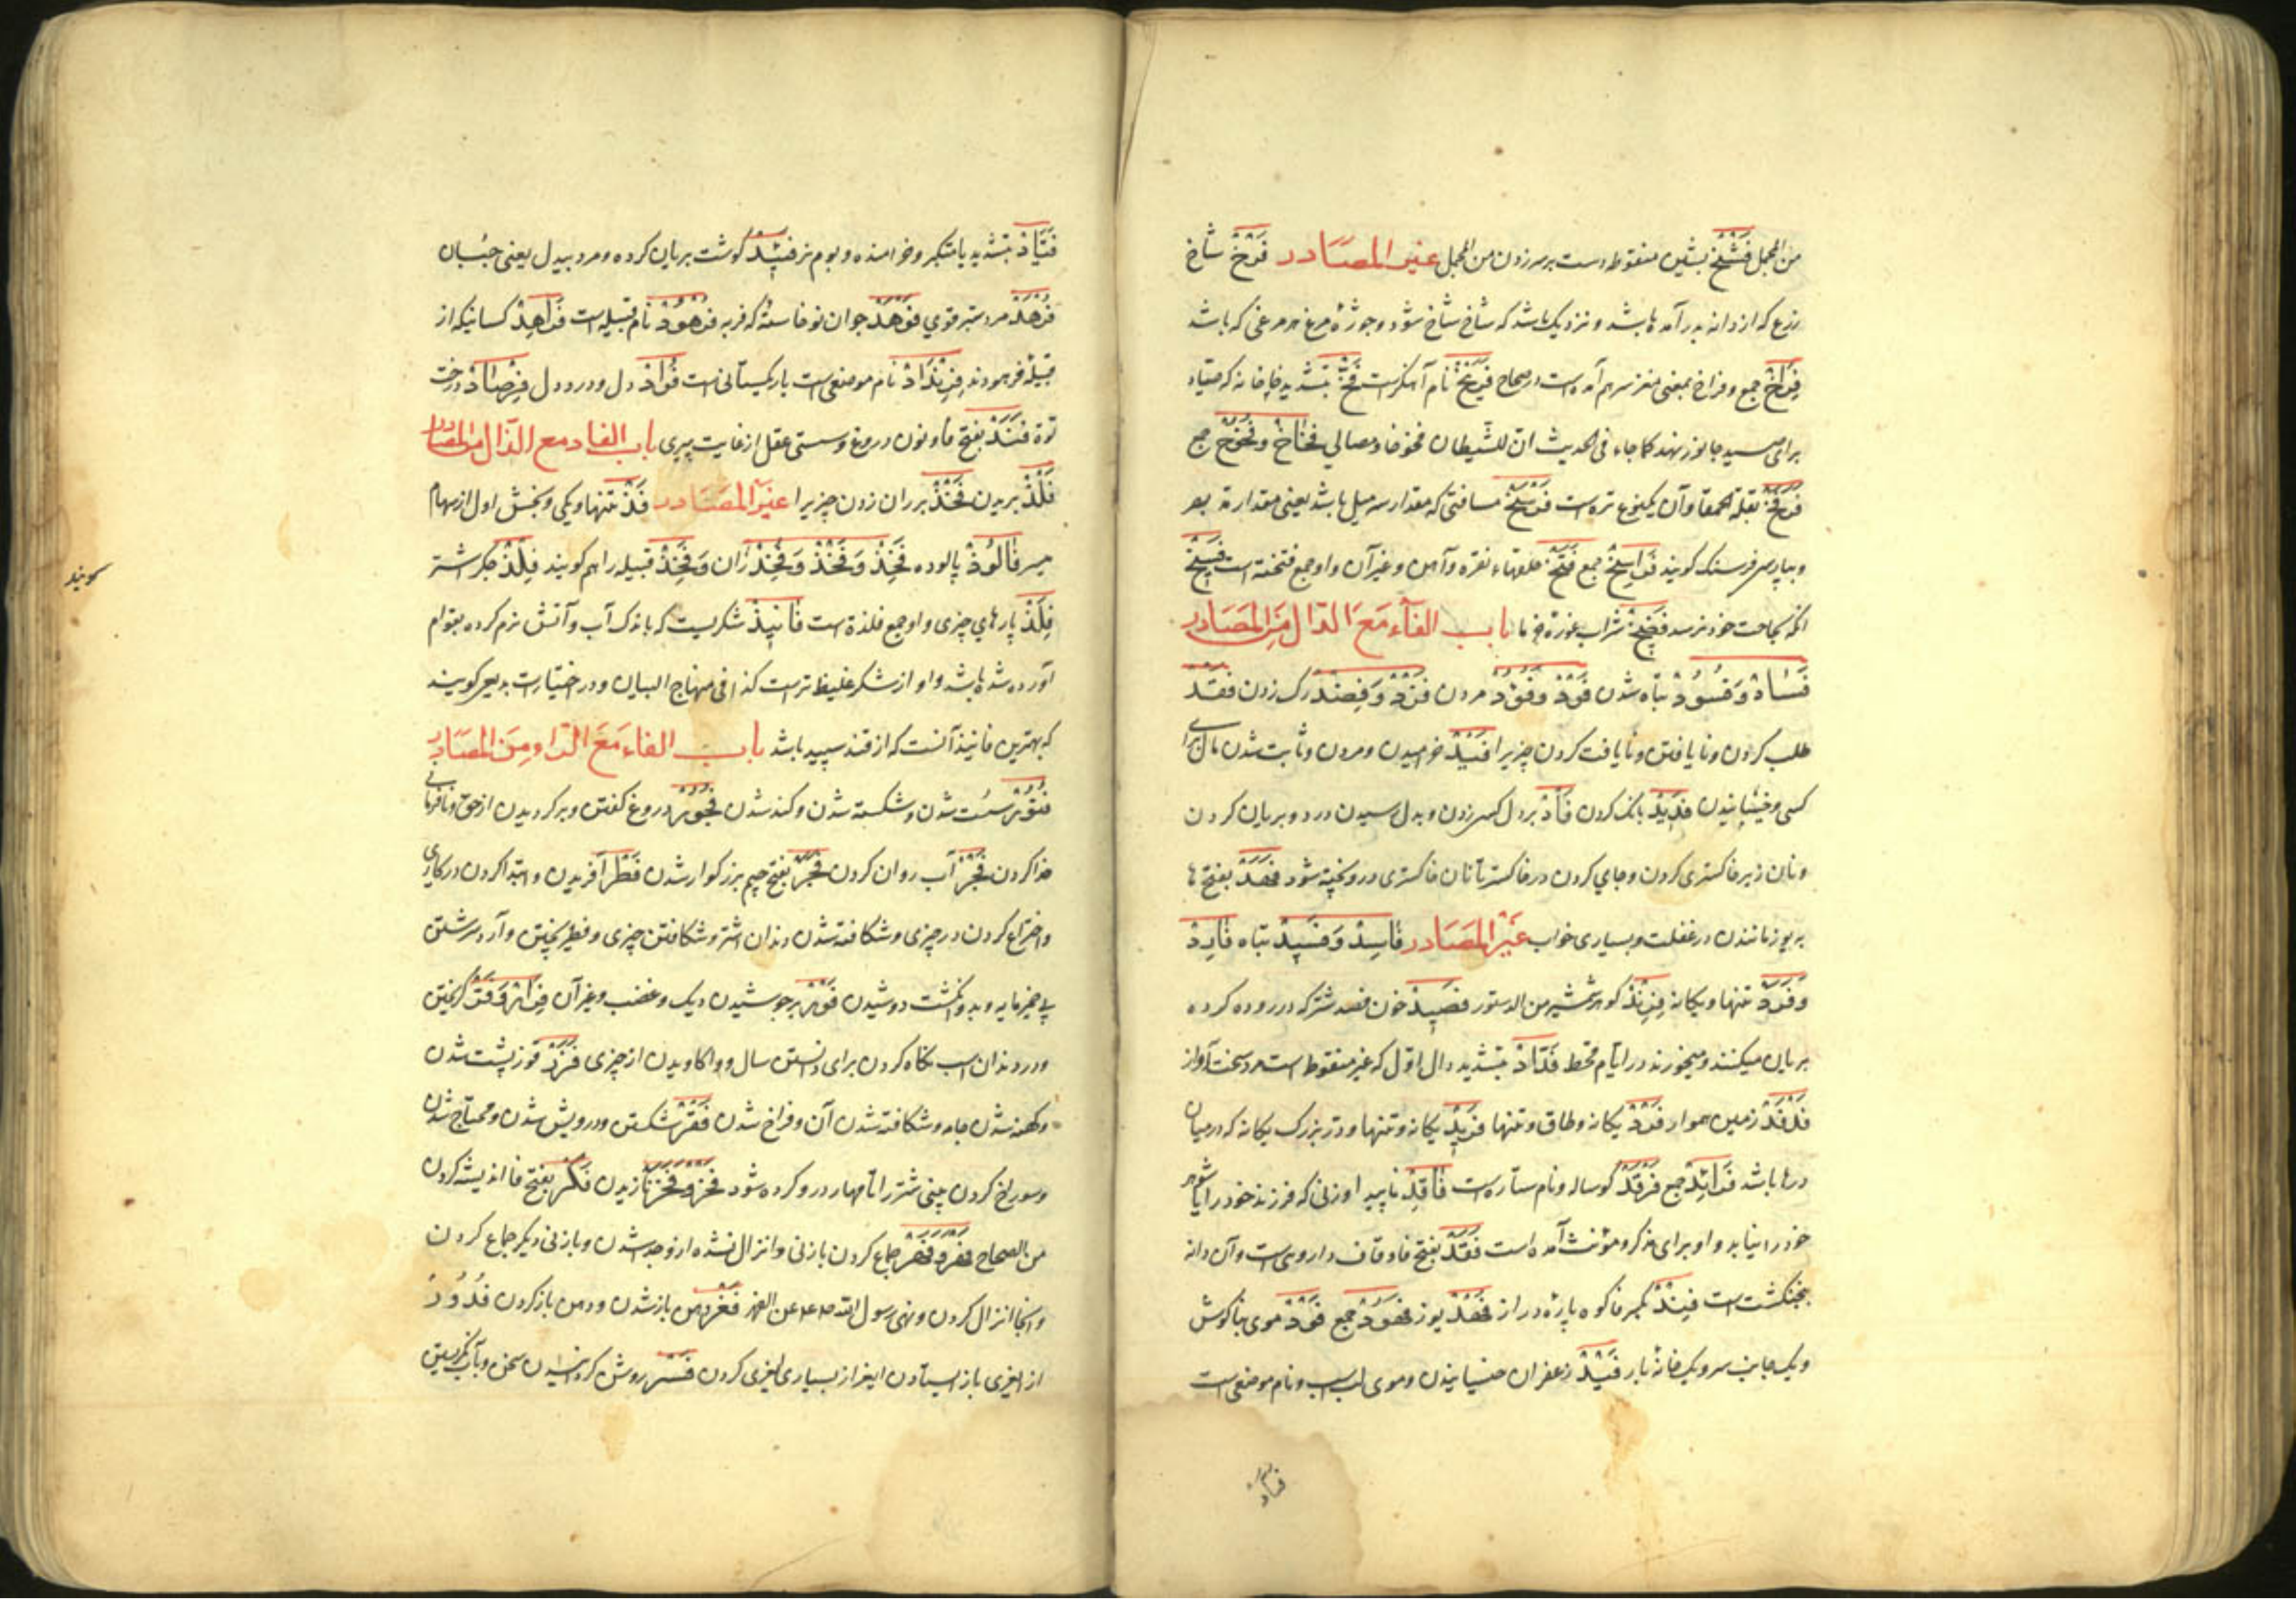 من المجمل فَشْخ بشین منقوطه دست بر سر زدن من المجمل غیر المصادر فَرْخ شاخ
زرع که از دانه بدر آمده باشد و نزدیک باشد که شاخ شاخ شود و جوژهٔ مرغ هر مرغی که باشد
فِراخ جمع و فراخ بمعنی مغز سر هم آمده است در صحاح نام آهنگرست فَخّ بتشدید خا خانه که صیاد
برای صید جانور نهد کما جاء فی الحدیث ان للشیطان فخوخا و مصالی فِخاخ و فُخوخ جمع
فرفخ بقلة الحمقا و آن یکنوع تره است فَرْسَخ مسافتی که مقدار سه میل باشد یعنی مقدار
و بپارسی فرسنگ گویند فَراسِخ جمع فَتَخ حلقهاء نقره و آهن و غیر آن و او جمع فتخه است فسیخ
انکه بحاجت خود نرسد فضیخ شراب غورهٔ خرما باب الفآء مَعَ الدّال مِنَ المَصَادر
فَسَاد وَ فُسُود تباه شدن فَوْد و فود مردن فَصْد وَ فِصَاد رگ زدن فقد
طلب کردن و نا یافتن و نا یافت کردن چیزیرا فَیْد خرامیدن و مردن و ثابت شدن مال برای
کسی و خیسانیدن فَدِید بانگ کردن فَأْد بر دل کسی زدن و بدل رسیدن درد و بریان کردن
و نان زیر خاکستری کردن و جای کردن در خاکستر تا نان خاکستری درو پخته شود فَهَد بفتح ها
به یوز مانندن در غفلت و بسیاری خواب غَیْر المَصَادر فَاسِد وَ فَسِید تباه فَارِد
وَ فَرَد تنها و یگانه فِرِنْد گوهر شمشیر من الدستور فَصِید خون فصد شتر که در روده کرده
بریان میکنند و میخورند در ایام قحط فَدّاد بتشدید دال اول که غیر منقوط است مرد سخت آواز
فَدْفَد زمین هموار فَرْد یگانه و طاق و تنها فَرِید یگانه و تنها و در بزرگ یگانه که در میان
درها باشد فَرائِد جمع فَرْقَد گوساله و نام ستاره است فَاقِد ناپدید او زنی که فرزند خود را یا شوهر
خود را نیابد و او برای مذکر و مؤنث آمده است فَقَد بفتح فا و قاف داروی است و آن دانه
پنجنکشت است فِنْد بکسر فا کوه پارهٔ دراز فَهْد یوز فُهُود جمع فَوْد موی بناگوش
و یک جانب سر و یک خانهٔ بار فَیْد زعفران خیسانیدن و موی لب اسب و نام موضعی است
فیاد
فَیّاد بتشدید یا متکبر و خرامنده و بوم نر فَئید گوشت بریان کرده و مرد بیدل یعنی جبان
فَرْهَد مرد ستبر قوی فَوْهَد جوان نو خاسته که فربه فُرْهُود نام قبیله است فَرَاهِد کسانیکه از
قبیلهٔ فرهودند فِرِنْدَاد نام موضعی است یا ریگستانی است فُؤَاد دل و درد دل فِرْصَاد درخت
توت فَنَد بفتح فا و نون دروغ و سستی عقل از غایت پیری باب الفاء مع الذّال من المصادر
فَلْذ بریدن فَخْذ بر ران زدن چیزیرا غیر المَصَادر فَذّ تنها و یکی و بخش اول از سهام
میسر فَالُوذ پالوده فَخِذ وَ فَخْذ وَ فِخْذ ران وَ فَخِذ قبیله را هم گویند فِلْذ جگر شتر
گویند
فِلَذ پارهای چیزی و او جمع فلذة است فَانِیذ شکریست که باندک آب و آتش نرم کرده بقوام
آورده شده باشد و او از شکر غلیظ تر است کذا فی منهاج البیان و در اختیارات بدیعی گویند
که بهترین فانیذ آنست که از قند سپید باشد باب الفاء مَعَ الرّاء مِنَ المصَادر
فُتُور سست شدن و شکسته شدن و کند شدن فُجُور دروغ گفتن و برگردیدن از حق و نافرمانی
خدا کردن فَجْر آب روان کردن فَجَر بفتح جیم بزرگوار شدن فَطْر آفریدن و ابتدا کردن در کاری
و اختراع کردن در چیزی و شکافته شدن دندان اشتر و شکافتن چیزی و فطیر پختن و آرد سرشتن
بی خمیر مایه و بدو انگشت دوشیدن فَوْر بر جوشیدن دیگ و غضب و غیر آن فِرَار وَ فَرّ گریختن
و در دندان اسب نگاه کردن برای دانستن سال و وا کاویدن از چیزی فَزَر قوز پشت شدن
و کهنه شدن جامه و شکافته شدن آن و فراخ شدن فَقْر شکستن و درویش شدن و محتاج شدن
و سوراخ کردن بینی شتر را تا مهار درو کرده شود فَخْر و فَخَر نازیدن فَکْر بفتح فا اندیشه کردن
من الصحاح فَهْر و فَهَر جماع کردن با زنی و انزال نشده ازو جدا شدن و با زنی دیگر جماع کردن
و آنجا انزال کردن و نهی رسول الله صلعم عن الفهر فَغْر دهن باز شدن و دهن باز کردن فُدُور
از لغزی باز ایستادن از بسیاری لغزی کردن فَسْر روشن کردن سخن و بآب نگریستن